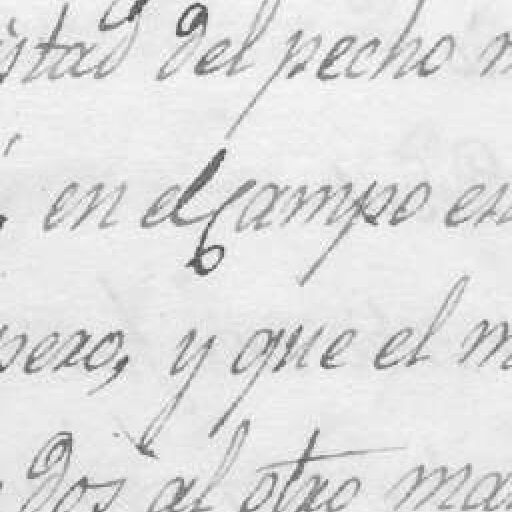 istad del pecho
en el campo en
pero, y que el
dos al otro mar